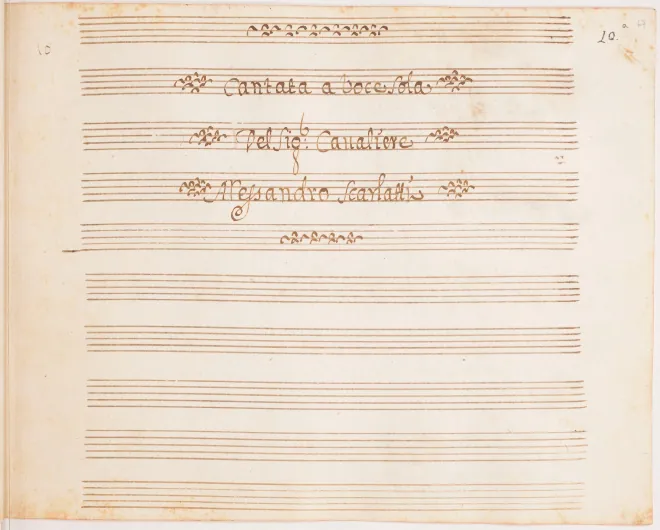 10.a
10
Cantata a Voce Sola
Del Sig.r Caualiere
Alessandro Scarlatti